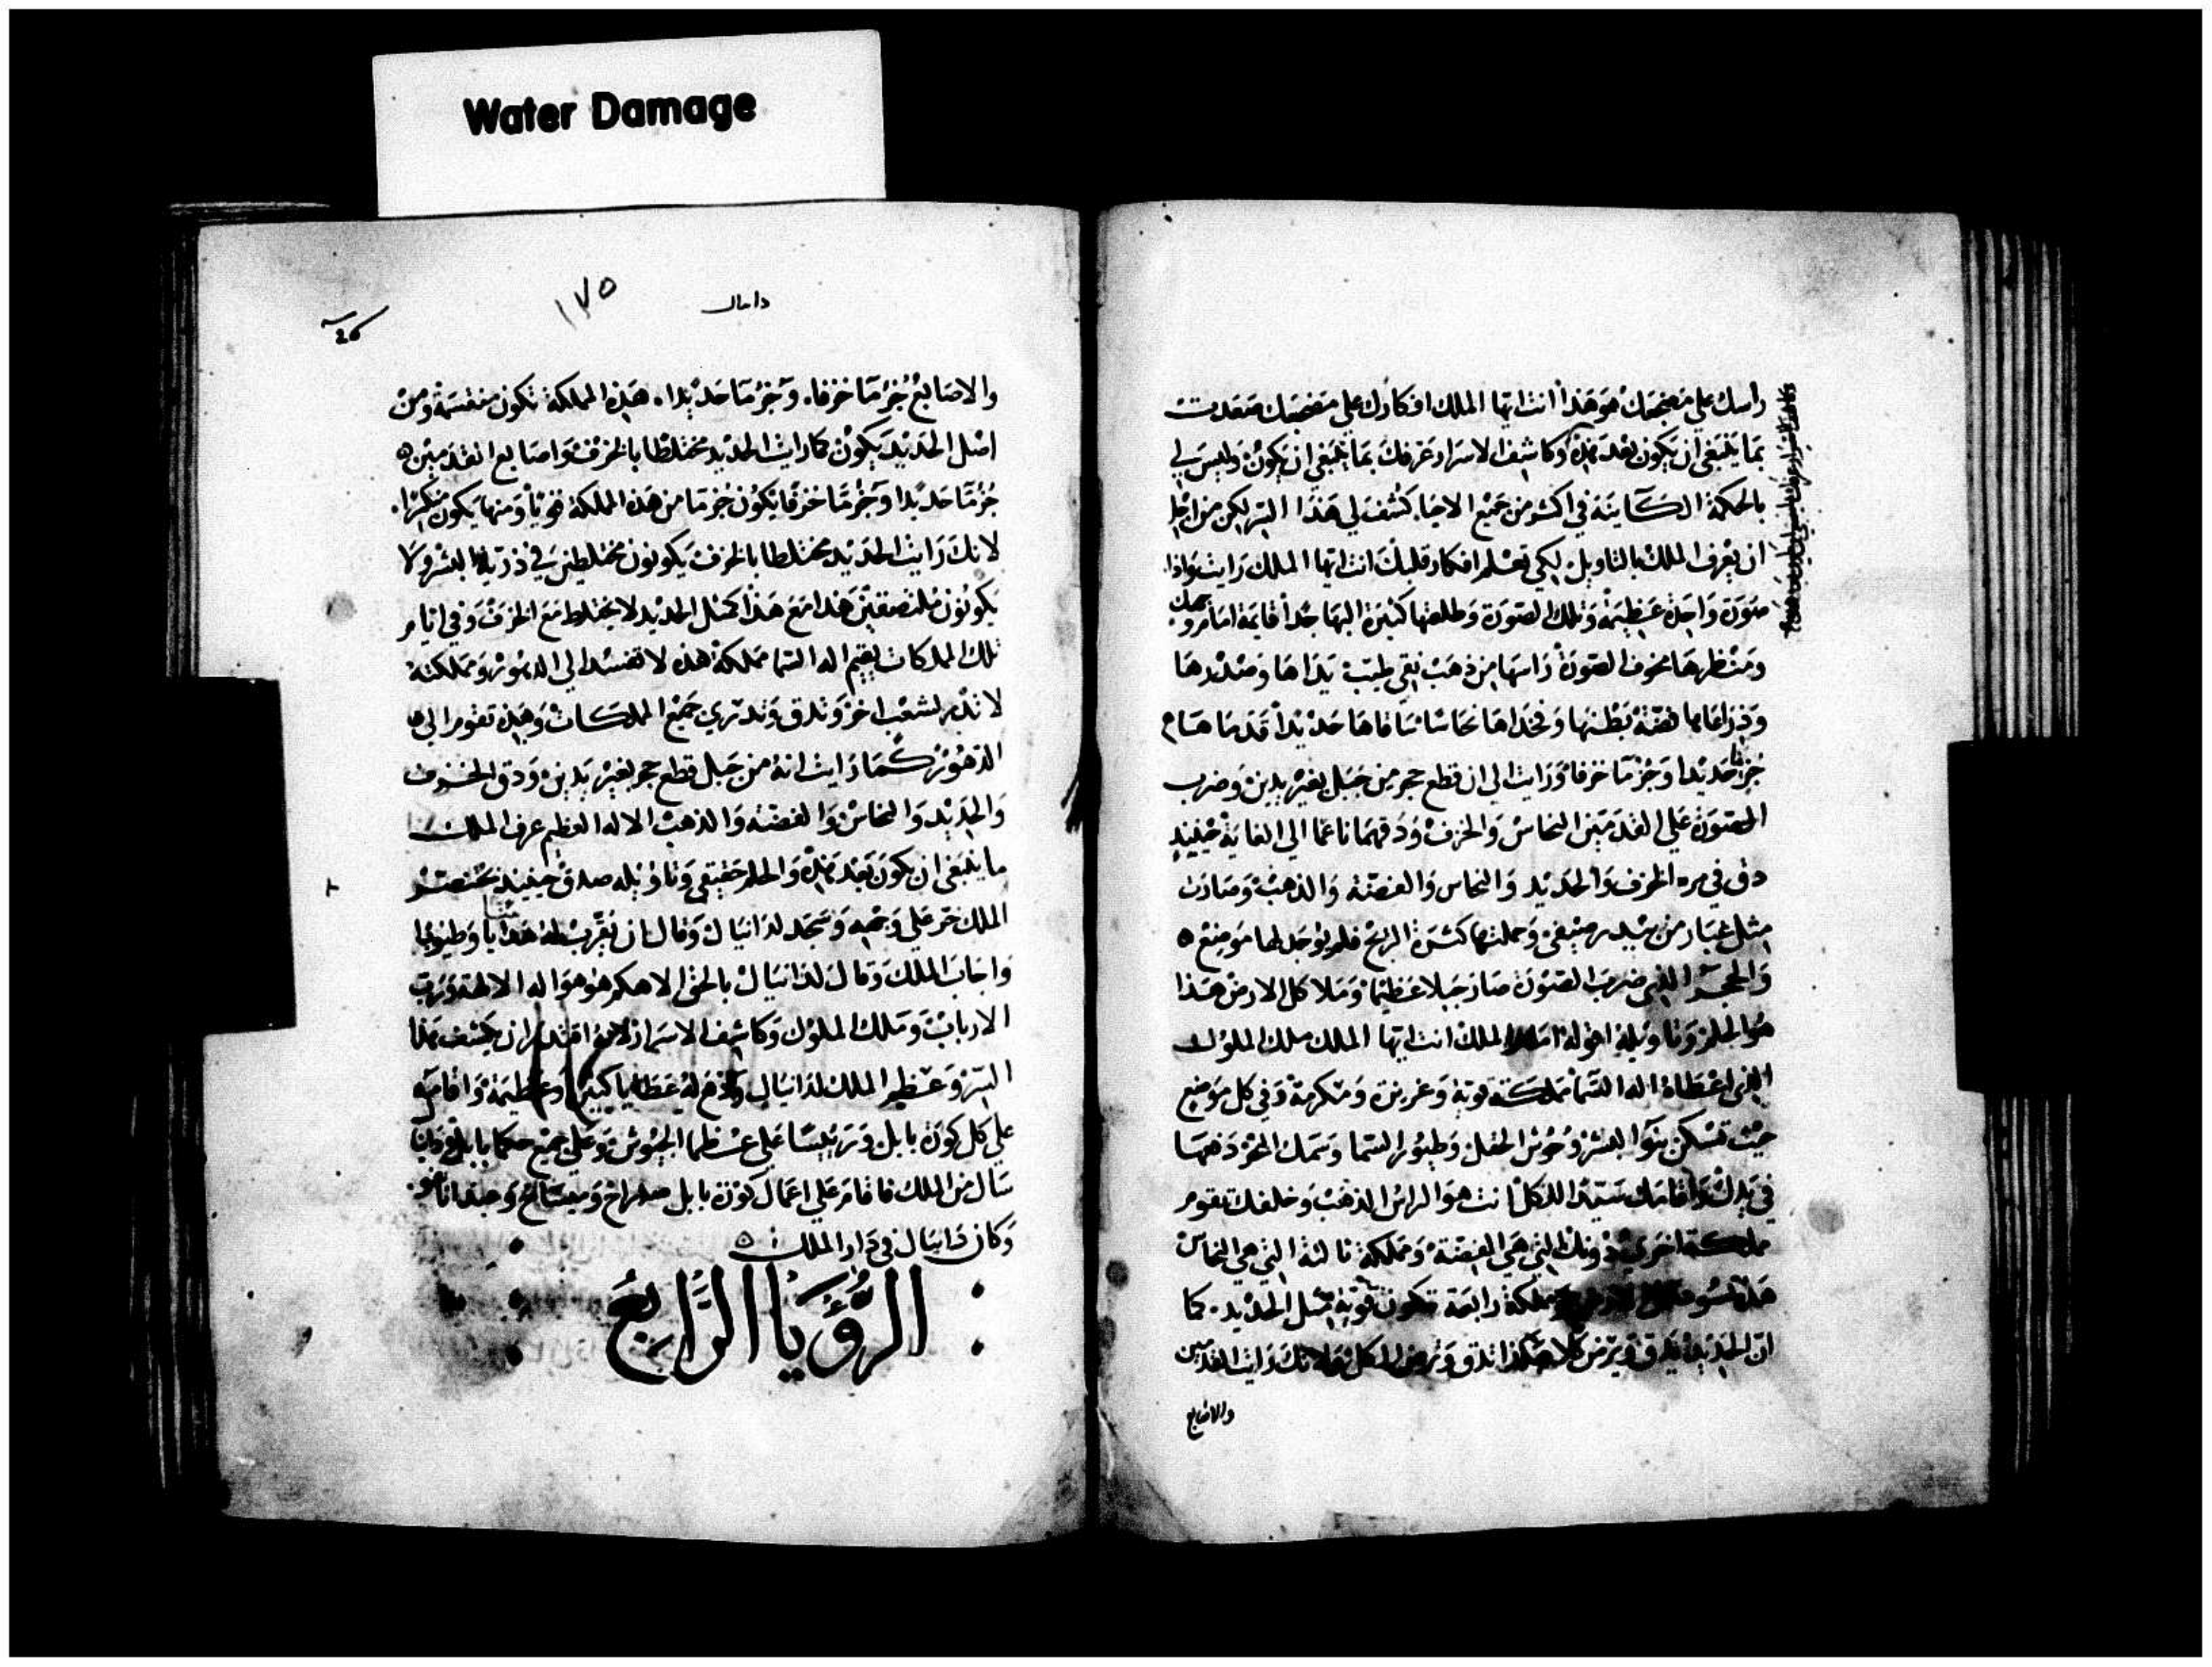 Water Damage
راسك علي مضجعك هو هذا انت ايها الملك افكارك علي مضجعك صعدت
بما ينبغي ان يكون بعد هذه وكاشف الاسرار عرفك بما ينبغي ان يكون وليس لي
بالحكمة الكاينة في اكثر من جميع الاحيا كشف لي هذا السر لكن من اجل
ان يعرف الملك بالتاويل لكي تعلم افكار قلبك انت ايها الملك رايت واذا
صورة واحدة عظيمة وتلك الصورة وطلعتها كثيرة البها جدا قايمة امام وجهك
ومنظرها مخوف الصورة راسها من ذهب نقي طيب يداها وصدرها
وذراعاها فضة بطنها وفخداها نحاسا ساقاها حديدا قدماها
جزءا حديدا وجزءما خزفا ورايت الي ان قطع حجر من جبل بغير يدين وضرب
الصورة علي القدمين النحاس والخزف ودقهما ناعما الي الغاية حينيذ
دق في مره الخزف والحديد والنحاس والفضة والذهب وصارت
مثل غبار من بيدر صيفي وحملتها كثرة الريح فلم يوجد لها موضع
والحجر الذي ضرب الصورة صار جبلا عظيما وملا كل الارض هذا
هو الحلم وتاويله اقوله امام الملك انت ايها الملك ملك الملوك
الذي اعطاه اله السما مملكة قوية وعزيزة ومكرمة وفي كل موضع
حيث تسكن بنوا البشر وحوش الحقل وطيور السما وسمك البحر دفعها
في يدك واقامك سيدا للكل انت هو الراس الذهب وخلفك تقوم
مملكة اخري دونك التي هي الفضة ومملكة ثالثة التي هي النحاس
ومملكة رابعة تكون قوية مثل الحديد كما
ان الحديد يدق ويرض كلا هكذا تدق وترض الكل ولانك رايت القدمين
والاصابع
دانيال
١٧٥
والاصابع جزءما خزفا وجزءما حديدا هذه المملكة تكون منقسمة ومن
اصل الحديد يكون كما رايت الحديد مختلطا بالخزف واصابع القدمين
جزءما حديدا وجزءما خزفا يكون جزءما من هذه المملكة قويا ومنها يكون منكسرا
لانك رايت الحديد مختلطا بالخزف يكونون مختلطين في ذرية البشر ولا
يكونون ملتصقين هذا مع هذا كمثل الحديد لا يختلط مع الخزف وفي ايام
تلك الملكات يقيم اله السما مملكة هذه لا تفسد الي الدهور ومملكته
لا تدم لشعب اخر وتدق وتدري جميع الملكات وهذه تقوم الي
الدهور كما رايت انه من جبل قطع حجر بغير يدين ودق الخزف
والحديد والنحاس والفضة والذهب الاله العظيم عرف الملك
ما ينبغي ان يكون بعد هذه والحلم حقيقي وتاويله صدق حينيذ بختنصر
الملك خر علي وجهه وسجد لدانيال وقال ان تقرب له هدايا وطيوبا
واجاب الملك وقال لدانيال بالحق الاهكم هو هو اله الالهة ورب
الارباب وملك الملوك وكاشف الاسرار لانه اقتدر ان يكشف هذا
السر وعظم الملك لدانيال ودفع له عطايا كبيرة وعظيمة واقامه
علي كل كورة بابل ورييسا علي عظما الجيوش وعلي جميع حكما بابل ودانيال
سال من الملك فاقام علي اعمال كورة بابل سدراخ وميساخ وعبدناغو
وكان دانيال في دار الملك
الرؤيا الرابع